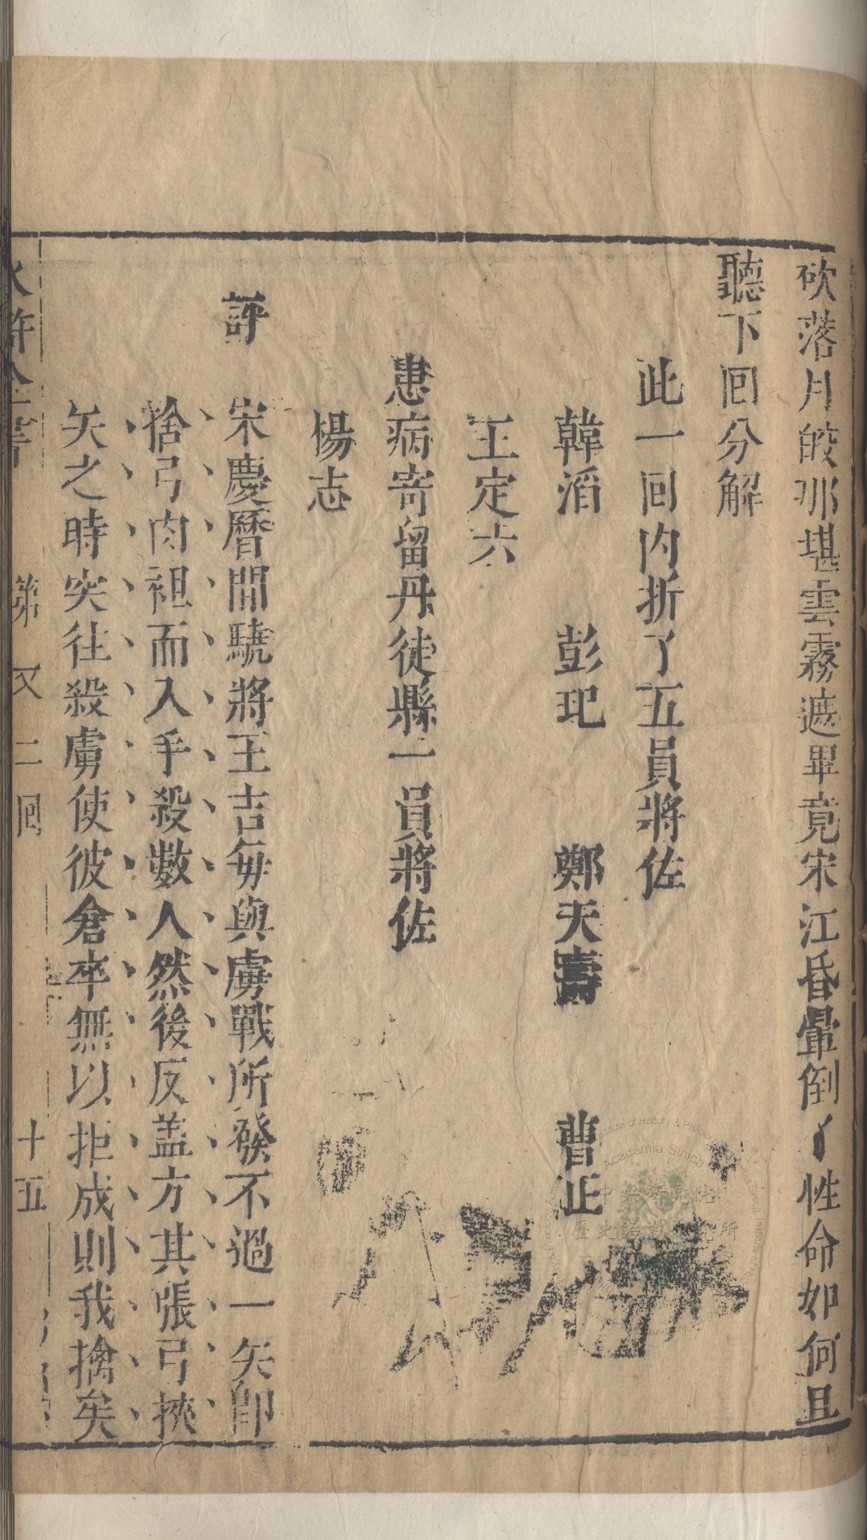 砍落月皎那堪雲霧遮畢竟宋江昏暈倒了性命如何且
聽下回分解
此一回內折了五員將佐
韓滔 彭玘 鄭天壽 曹正
王定六
患病寄留丹徒縣一員將佐
楊志
評 宋慶曆間驍將王吉每與虜戰所發不過一矢卽
捨弓肉袒而入手殺數人然後反盖方其張弓挾
矢之時突往殺虜使彼倉卒無以拒成則我擒矣
水滸全書 第又二回 十五